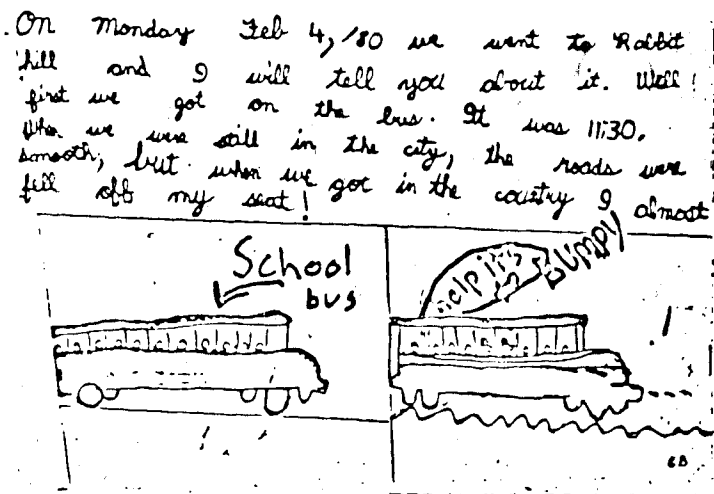 On Monday Feb 4, /80 we went to Rabbit
hill and I will tell you about it. Well!
first we got on the bus. It was 11:30.
When we were still in the city, the roads were
smooth, but when we got in the coutry I almost
fell off my seat!
School
bus
help it's
BUMPY
6B